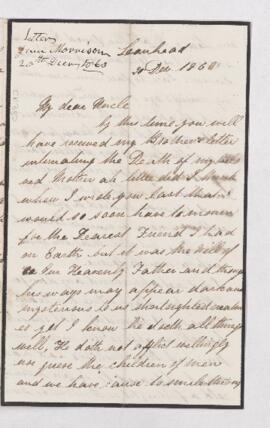 Letter
Morrison
20th Decr 1860
Leanhead
Dec 1860
My dear Uncle
by this time you will
have received my Brothers letter
intimating the Death of my
Mother ah little did I think
when I wrote you last that I
would so soon have to mourn
for the Dearest Friend I had
on Earth but it was the will of
our Heavenly Father and though
his ways may appear dark and
mysterious to us shortsighted creatures
as yet I know He doeth all things
well He doth not afflict willingly
nor grieve the children of men
and we have cause to